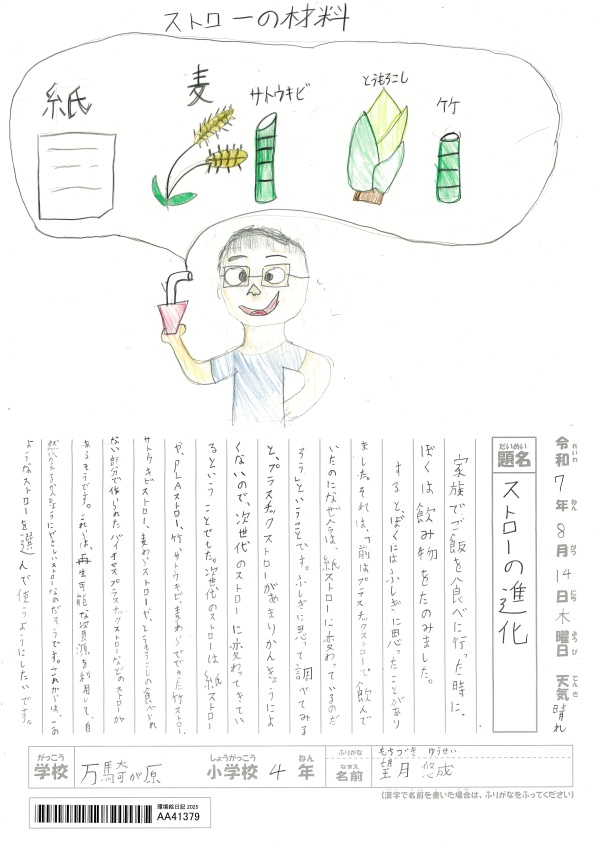 ストローの材料
紙
麦
サトウキビ
とうもろこし
竹
令和7年8月14日木曜日 天気 晴れ
れいわ ねん がつ にち ようび てんき
だいめい
題名
ストローの進化
家族でご飯を食べに行った時に、
ぼくは飲み物をたのみました。
すると、ぼくにはふしぎに思ったことがあり
ました。それは、「前はプラスチックストローで飲んで
いたのになぜ今は、紙ストローに変わっているのだ
ろう」ということです。ふしぎに思って調べてみる
と、プラスチックストローがあまりかんきょうによ
くないので、次世代のストローに変わってきてい
るということでした。次世代のストローは紙ストロー
や、PLAストロー、竹、サトウキビ、麦わらでできた竹ストロー、
サトウキビストロー、麦わらストローや、とうもろこしの食べられ
ない部分で作られたバイオマスプラスチックストローなどのストローが
あるそうです。これらは、再生可能な資源を利用して、自
然かんきょうにやさしいストローなのだそうです。これからは、この
ようなストローを選んで使うようにしたいです。
がっこう
学校
万騎が原
しょうがっこう
小学校
4
ねん
年
ふりがな
もちづき ゆうせい
なまえ
名前
望月 悠成
(漢字で名前を書いた場合は、ふりがなをふってください)
環境絵日記 2025
AA41379